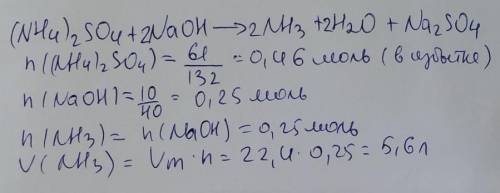 (NH4)2SO4 + 2NaOH → 2NH3 + 2H2O + Na2SO4
n((NH4)2SO4) = 61/132 = 0,46 моль (в избытке)
n(NaOH) = 10/40 = 0,25 моль
n(NH3) = n(NaOH) = 0,25 моль
V(NH3) = Vm · n = 22,4 · 0,25 = 5,6 л